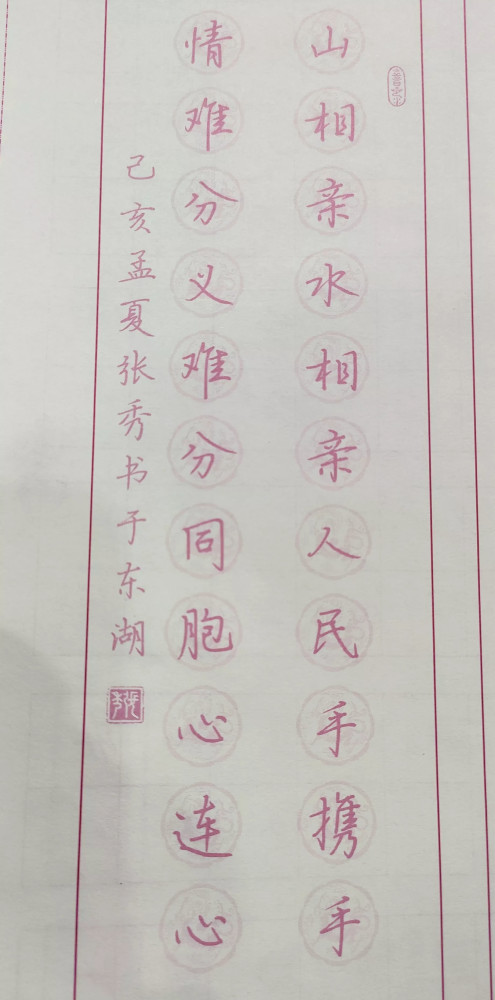 山相亲水相亲人民手携手
情难分义难分同胞心连心
己亥孟夏张秀书于东湖